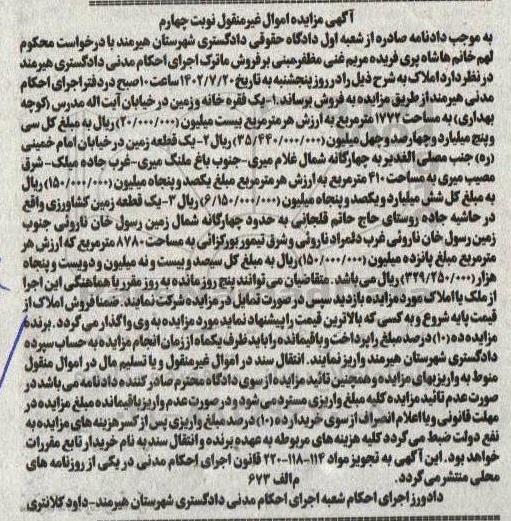 آگهی مزایده اموال غیرمنقول نوبت چهارم
به موجب دادنامه صادره از شعبه اول دادگاه حقوقی دادگستری شهرستان هیرمند با درخواست محکوم
لهم خانم ها شاه پری فریده مریم غنی مظفر مبنی بر فروش ماترک اجرای احکام مدنی دادگستری هیرمند
در نظر دارد املاک به شرح ذیل را در روز پنجشنبه به تاریخ ۱۴۰۲/۷/۲۰ ساعت ۱۰ صبح در دفتر اجرای احکام
مدنی هیرمند از طریق مزایده به فروش برساند. ۱-یک فقره خانه و زمین در خیابان آیت اله مدرس (کوچه
بهداری) به مساحت ۱۷۷۲ مترمربع به ارزش هر مترمربع بیست میلیون (۲۰/۰۰۰/۰۰۰) ریال به مبلغ کل سی
و پنج میلیارد و چهارصد و چهل میلیون (۳۵/۴۴۰/۰۰۰/۰۰۰) ریال ۲-یک قطعه زمین در خیابان امام خمینی
(ره) جنب مصلی الغدیر به چهارگانه شمال غلام میری-جنوب باغ ملنگ میری-غرب جاده میلک-شرق
مصیب میری به مساحت ۴۱۰ مترمربع به ارزش هر مترمربع مبلغ یکصد و پنجاه میلیون (۱۵۰/۰۰۰/۰۰۰) ریال
به مبلغ کل شش میلیارد و یکصد و پنجاه میلیون (۶/۱۵۰/۰۰۰/۰۰۰) ریال ۳-یک قطعه زمین کشاورزی واقع
در حاشیه جاده روستای حاج حاتم قلجائی به حدود چهارگانه شمال زمین رسول خان نارونی جنوب
زمین رسول خان نارونی غرب دلمراد نارونی و شرق تیمور بورکزائی به مساحت ۸۷۸۰ مترمربع که ارزش هر
مترمربع مبلغ پانزده میلیون (۱۵۰/۰۰۰/۰۰۰) ریال به مبلغ کل سیصد و بیست و نه میلیون و دویست و پنجاه
هزار (۳۲۹/۲۵۰/۰۰۰) ریال می باشد. متقاضیان می توانند پنج روز مانده به روز مقرر با هماهنگی این اجرا
از ملک یا املاک مورد مزایده بازدید سپس در صورت تمایل در مزایده شرکت نمایند. ضمنا فروش املاک از
قیمت پایه شروع و به کسی که بالاترین قیمت را پیشنهاد نماید مورد مزایده به وی واگذار می گردد. برنده
مزایده ده (۱۰) درصد مبلغ را پرداخت و باقیمانده را باید ظرف یکماه از زمان انجام مزایده به حساب سپرده
دادگستری شهرستان هیرمند واریز نمایند. انتقال سند در اموال غیرمنقول و یا تسلیم مال در اموال منقول
منوط به واریز بهای مزایده و همچنین تائید مزایده از سوی دادگاه محترم صادر کننده دادنامه می باشد در
صورت عدم تائید مزایده کلیه مبلغ واریزی مسترد می شود و در صورت عدم واریز باقیمانده مبلغ مزایده در
مهلت قانونی و یا اعلام انصراف از سوی خریدار ده (۱۰) درصد مبلغ واریزی پس از کسر هزینه های مزایده به
نفع دولت ضبط می گردد کلیه هزینه های مربوطه به عهده برنده و انتقال سند به نام خریدار تابع مقررات
خواهد بود. این آگهی به تجویز مواد ۱۱۴-۱۱۸-۲۲۰ قانون اجرای احکام مدنی در یکی از روزنامه های
محلی منتشر می گردد. م الف ۶۷۳
دادورز اجرای احکام شعبه اجرای احکام مدنی دادگستری شهرستان هیرمند-داود کلانتری